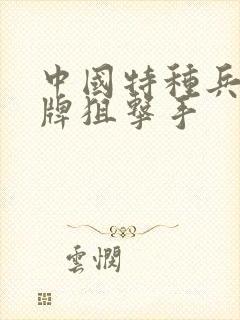 中國特種兵
牌狙擊手
雲憫